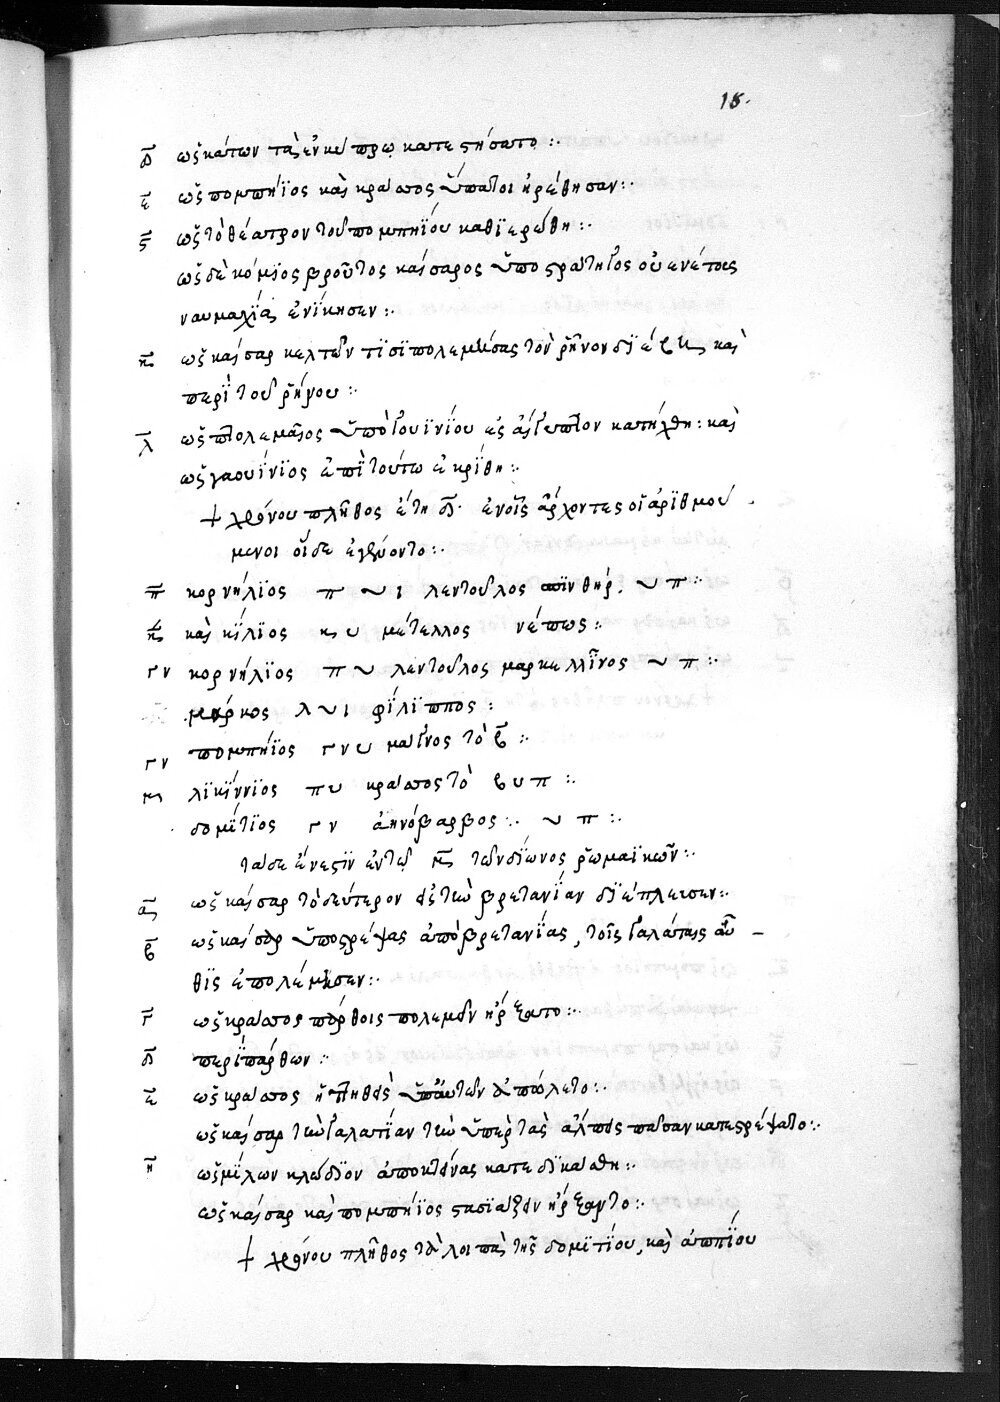 18.
δ̄ ὡς κάτων τὰ ἐν κύπρω κατεστήσατο :·
ε̄ ὡς πομπήϊος καὶ κράσσος ὕπατοι ἡρέθησαν :·
ς̄ ὡς τὸ θέατρον τοῦ πομπηΐου καθϊερώθη :·
ὡς δὲ κόμϊος βροῦτος καίσαρος ὑποστράτηγος οὐενέτους
ναυμαχίᾳ ἐνίκησεν :·
η̄ ὡς καίσαρ κελτῶν τισϊ πολεμήσας τὸν ῥῆνον δϊέβη καὶ
περὶ τοῦ ῥήνου :·
λ̄ ὡς πτολεμαῖος ὑπὸ γουϊνίου ἐς αἴγυπτον κατήχθη : καὶ
ὡς γαουίνϊος ἐπὶ τούτω ἐκρίθη :·
+ χρόνου πλῆθος ἔτη δ̄· ἐν οἷς ἄρχοντες οἱ ἀριθμού
μενοι οἵδε ἐγένοντο :·
π̄ κορνήλϊος π υ ι λεντοῦλος σπινθήρ. υ π :·
κ̄ καὶ κίλϊος κ υ μέτελλος νέπως :·
γν κορνήλϊος π υ λεντοῦλος μαρκελλῖνος υ π :·
μάρκος λ υ ι φίλϊππος :
γν πομπήϊος γν υ μάγνος τὸ β̄ :·
μ λικίννϊος π υ κράσσος τὸ β υ π :·
δομίτϊος γ ν ἀηνόβαρβος :. υ π :·
τάδε ἔνεστϊν ἐν τῶ μ̄ τῶν δίωνος ῥωμαϊκῶν :·
ᾱ ὡς καίσαρ τὸ δεύτερον ἐς τὴν βρετανίαν δϊέπλευσεν :·
β̄ ὡς καίσαρ ὑποστρέψας ἀπὸ βρετανίας, τοῖς γαλάταις αὖ –
θϊς ἐπολέμησεν :·
γ̄ ὡς κράσσος πάρθοις πολεμεῖν ἤρξατο :·
δ̄ περὶ πάρθων :·
ε̄ ὡς κράσσος ἡττηθεὶς ὑπ' αὐτῶν ἀπώλετο :·
ὡς καίσαρ τὴν γαλατίαν τὴν ὑπὲρ τὰς ἄλπεις πᾶσαν κατεστρέψατο :·
η̄ ὡς μίλων κλώδϊον ἀποκτείνας κατεδϊκάσθη :·
ὡς καίσαρ καὶ πομπήϊος στασϊάζειν ἤρξαντο :·
+ χρόνου πλῆθος τὰ λοιπὰ τῆς δομιτίου, καὶ ἀππίου